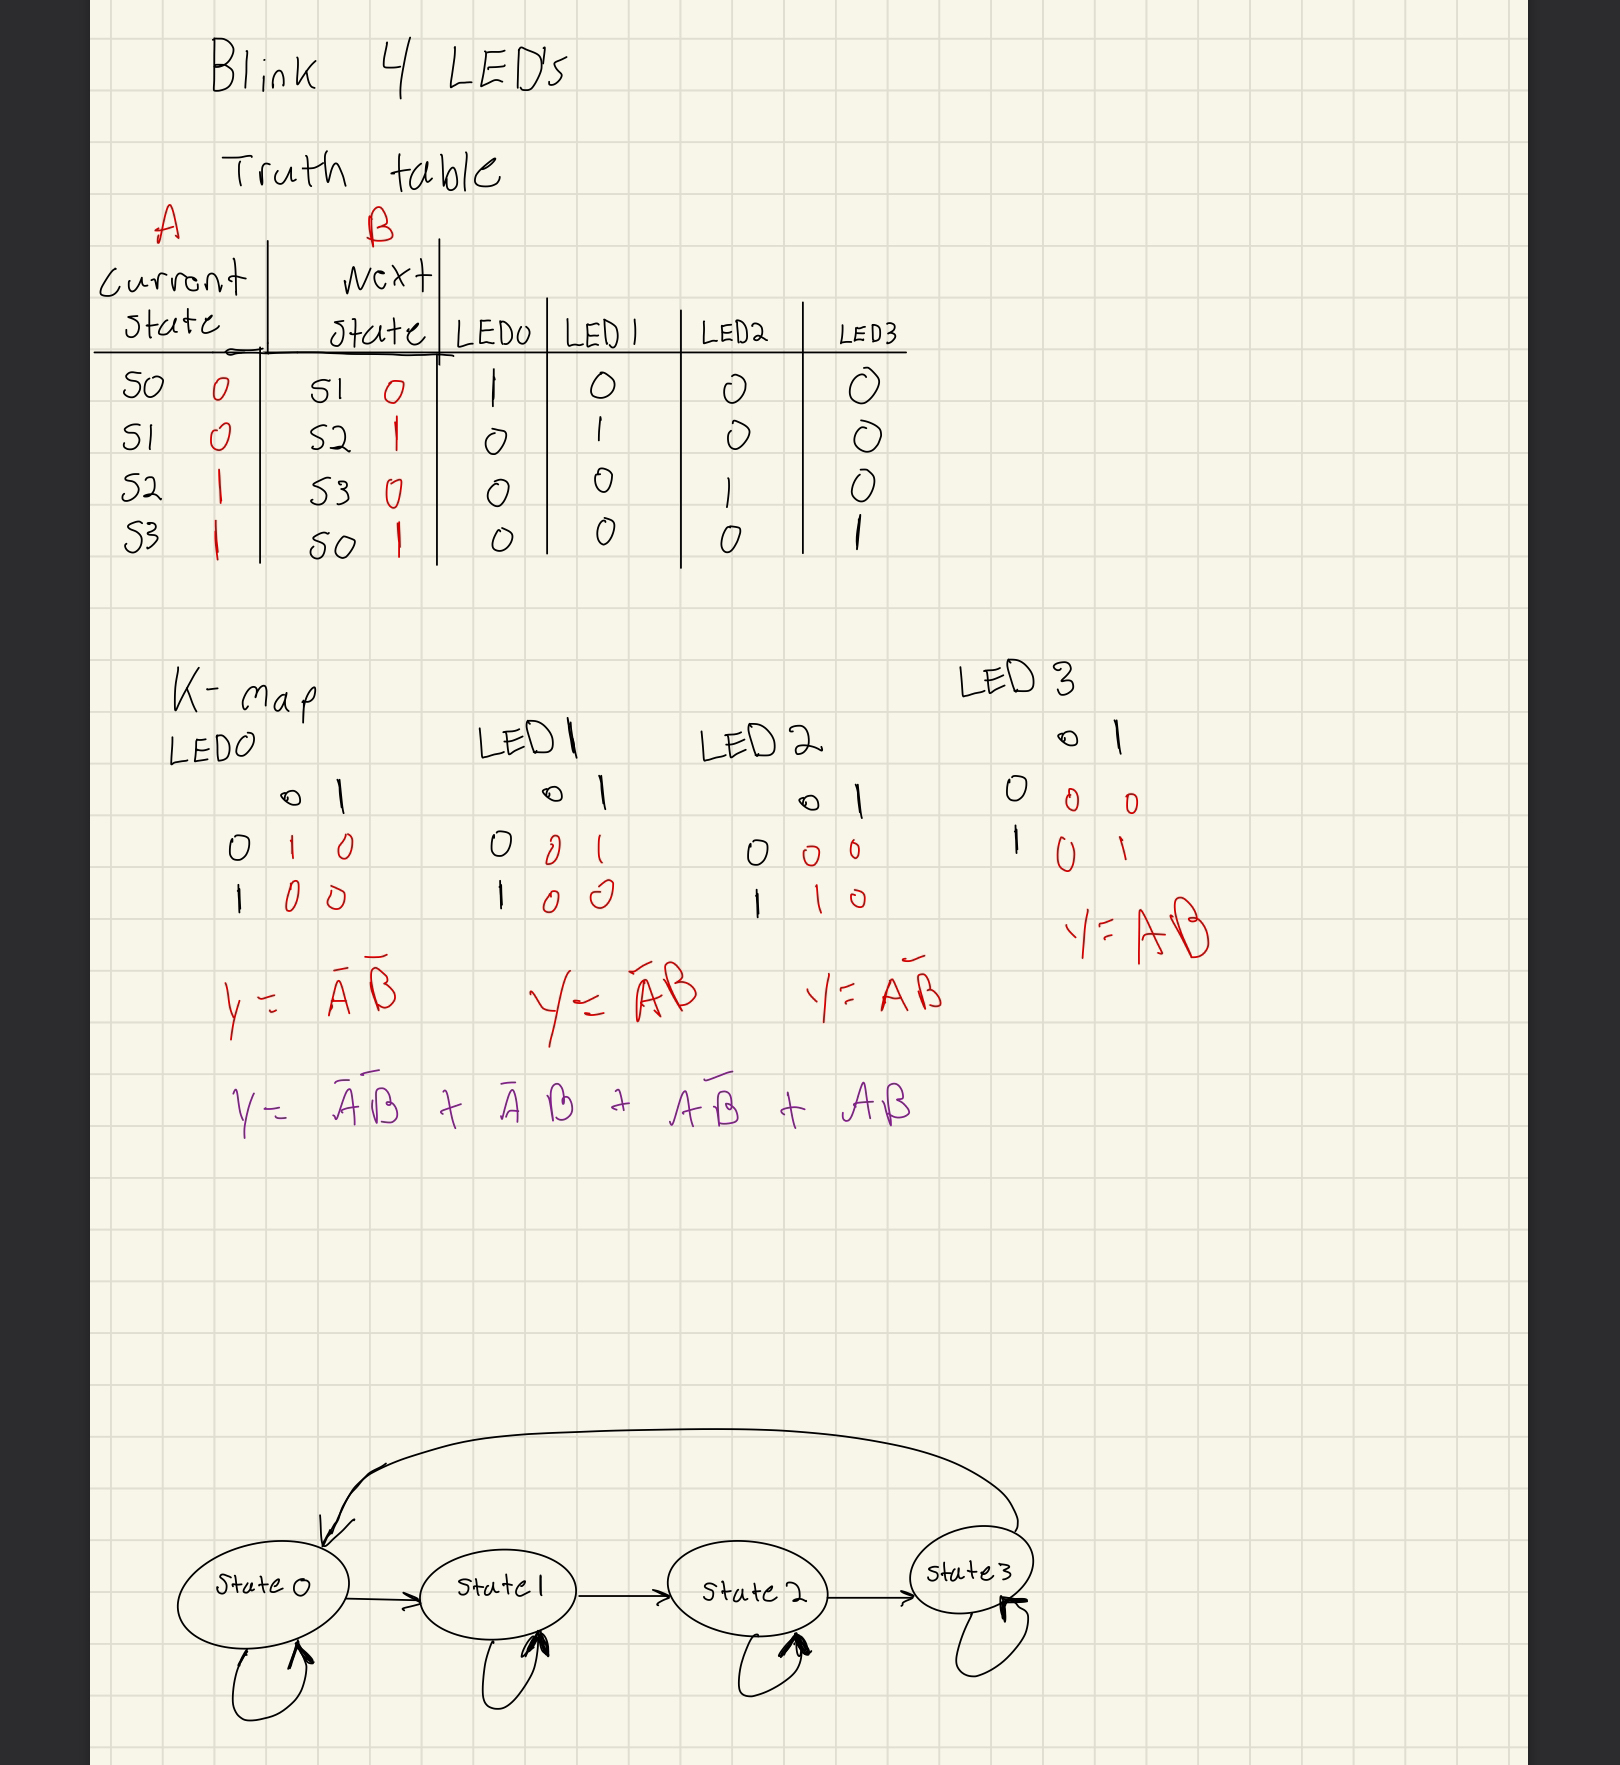 Blink 4 LED's
Truth table
A B
Current Next
state state LED0 LED1 LED2 LED3
S0 0 S1 0 1 0 0 0
S1 0 S2 1 0 1 0 0
S2 1 S3 0 0 0 1 0
S3 1 S0 1 0 0 0 1
K-map
LED0
0 1
0 1 0
1 0 0
Y = A̅ B̅
LED1
0 1
0 0 1
1 0 0
Y = A̅B
LED 2
0 1
0 0 0
1 1 0
Y = AB̅
LED 3
0 1
0 0 0
1 0 1
Y = AB
Y = A̅B̅ + A̅ B + AB̅ + AB
State 0 State 1 State 2 State 3